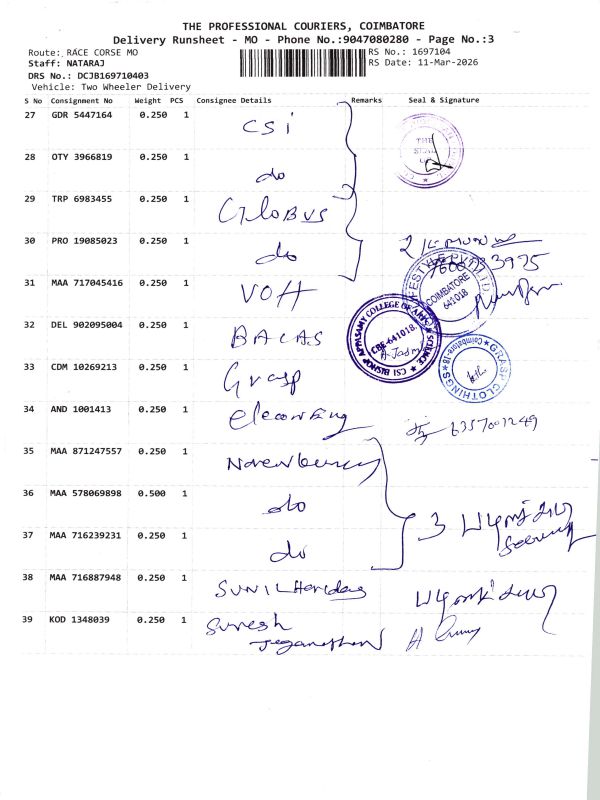 THE PROFESSIONAL COURIERS, COIMBATORE
Delivery Runsheet - MO - Phone No.:9047080280 - Page No.:3
Route: RACE CORSE MO
RS No.: 1697104
Staff: NATARAJ
RS Date: 11-Mar-2026
DRS No.: DCJB169710403
Vehicle: Two Wheeler Delivery
S No Consignment No Weight PCS Consignee Details Remarks Seal & Signature
27 GDR 5447164 0.250 1 CSi
28 OTY 3966819 0.250 1 do
29 TRP 6983455 0.250 1 GloBUS
30 PRO 19085023 0.250 1 do
31 MAA 717045416 0.250 1 VOH
COIMBATORE
641018
32 DEL 902095004 0.250 1 BACAS
CSI BISHOP APPASAMY COLLEGE OF ARTS & SCIENCE
CBE-641018.
33 CDM 10269213 0.250 1 Grasp
GRASP CLOTHINGS Coimbatore-18
34 AND 1001413 0.250 1 6357001249
35 MAA 871247557 0.250 1
36 MAA 578069898 0.500 1 do
37 MAA 716239231 0.250 1 do
3
38 MAA 716887948 0.250 1 SUNIL Haridas
39 KOD 1348039 0.250 1 Suresh
Jeganathan